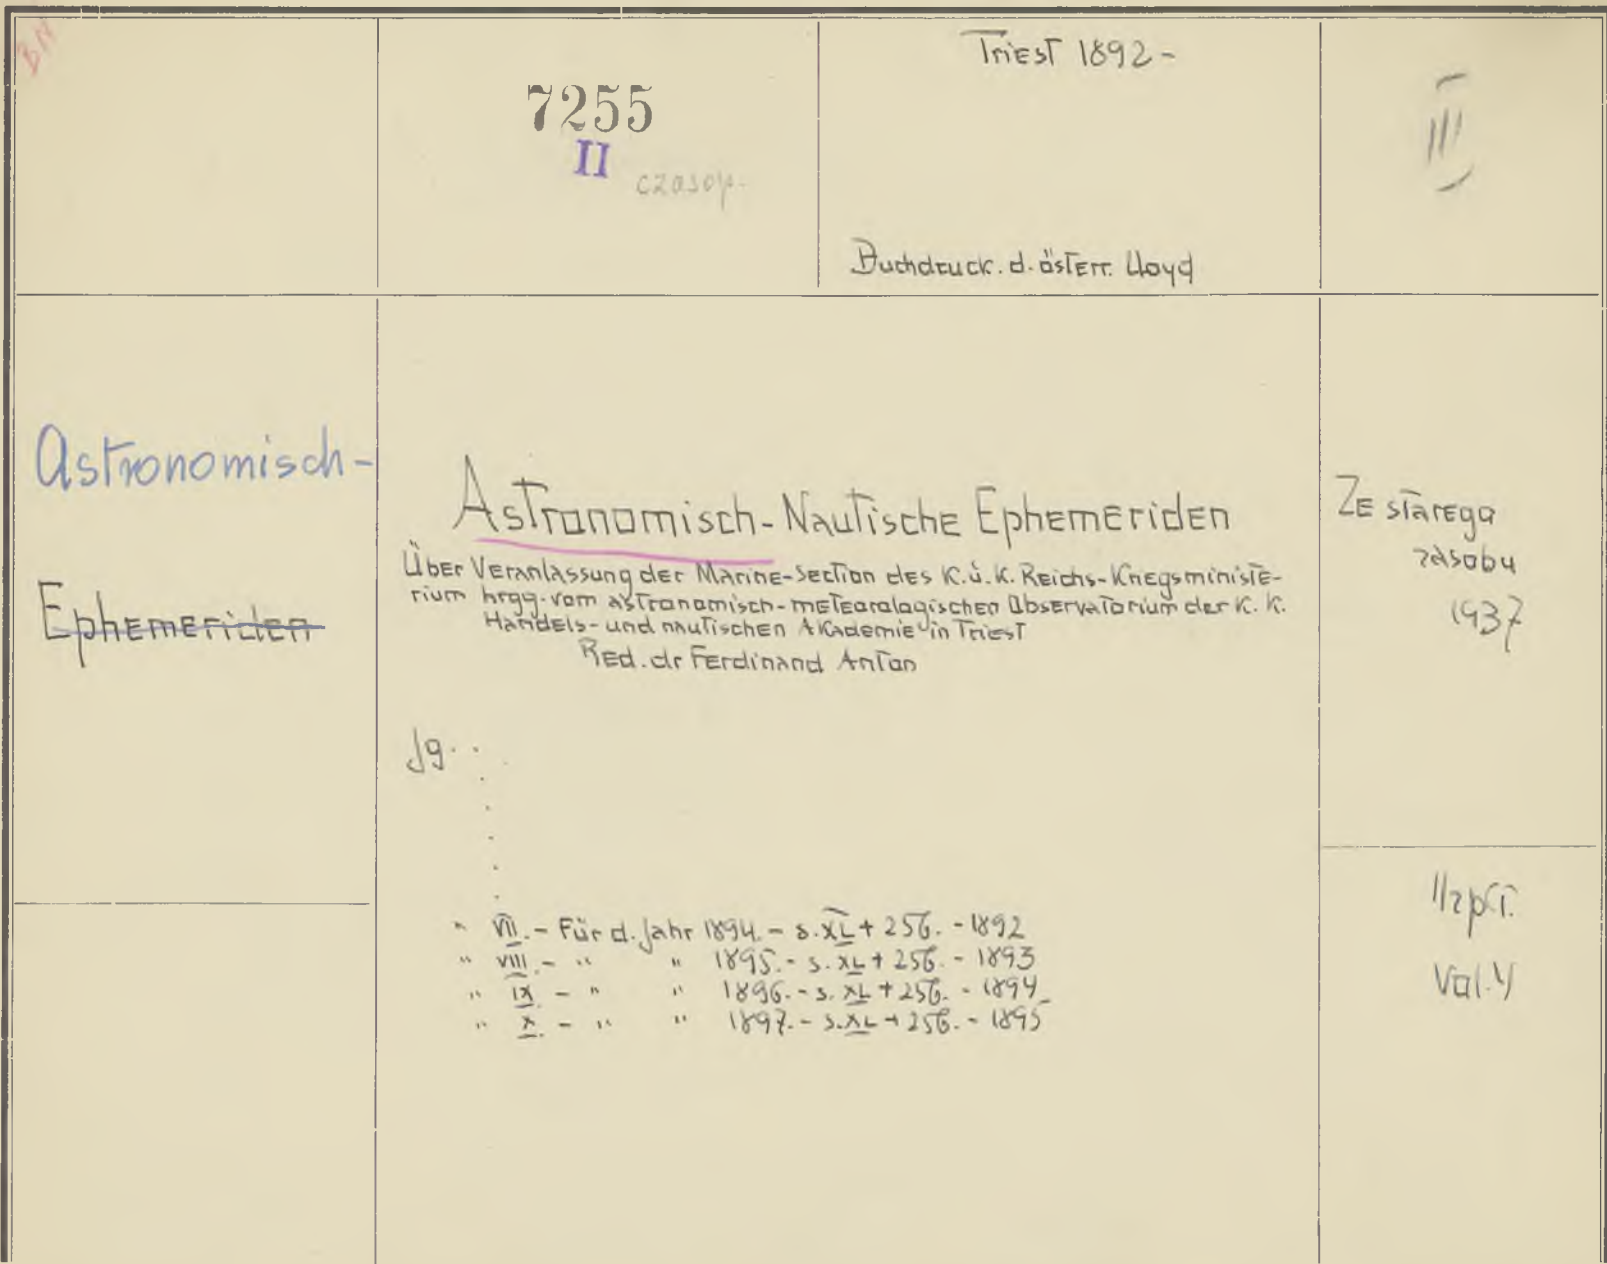 BN
7255
II
czasop.
Triest 1892-
Buchdruck. d. österr. Lloyd
III
Astronomisch-
Ephemeriden
Astronomisch-Nautische Ephemeriden
Über Veranlassung der Marine-Section des K.u.K. Reichs-Kriegsministe-
rium hrgg. vom astronomisch-meteorologischen Observatorium der K. K.
Handels- und nautischen Akademie in Triest
Red. dr Ferdinand Anton
Ze starego
zasobu
1937
Jg. . 
" VII. - Für d. Jahr 1894. - s. XL + 256. - 1892
" VIII. - " " 1895. - s. XL + 256. - 1893
" IX - " " 1896. - s. XL + 256. - 1894
" X. - " " 1897. - s. XL + 256. - 1895
Vol. 4